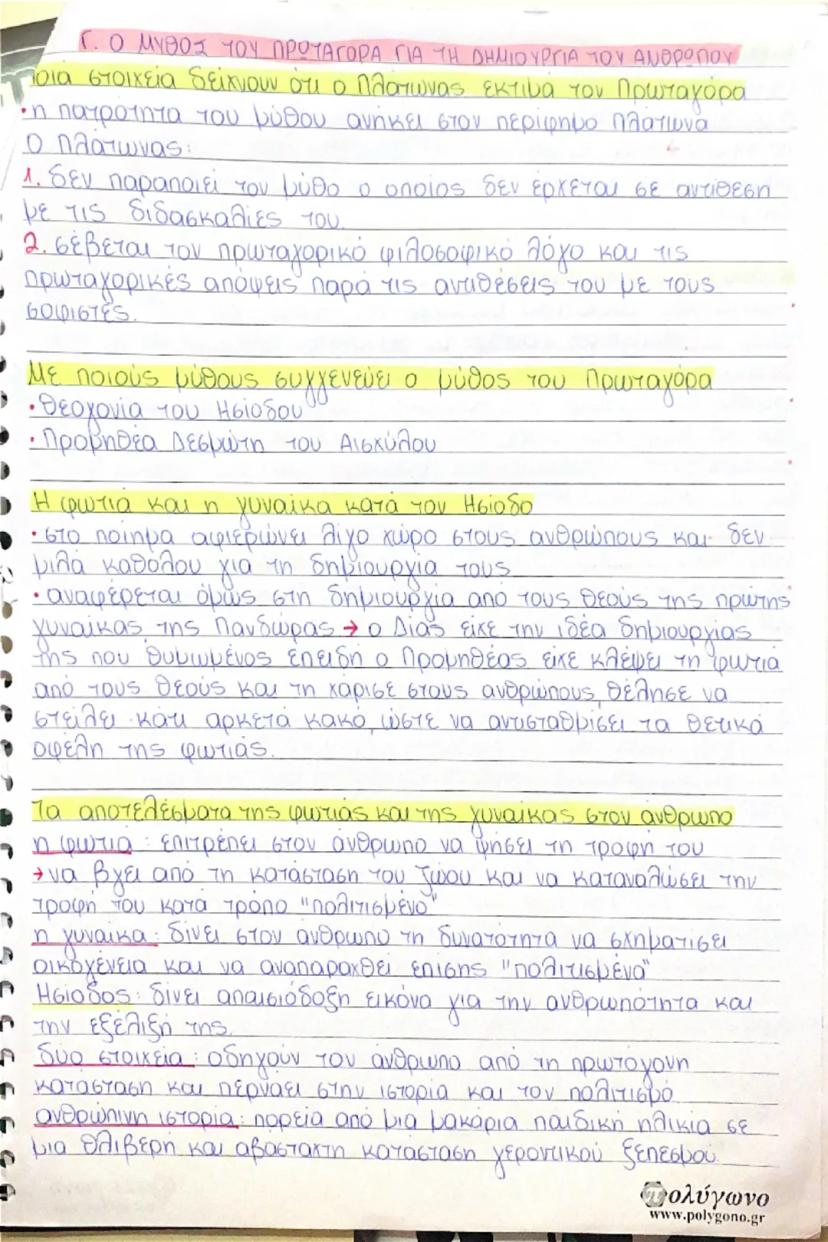 Γ. Ο ΜΥΘΟΣ ΤΟΥ ΠΡΩΤΑΓΟΡΑ ΓΙΑ ΤΗ ΔΗΜΙΟΥΡΓΙΑ ΤΟΥ ΑΝΘΡΩΠΟΥ
οιά στοιχεία δείχνουν ότι ο Πλάτωνας εκτιμά τον Πρωταγόρα
• η πατρότητα του μύθου ανήκει στον περίφημο Πλάτωνα
Ο Πλάτωνας:
1. δεν παραποιεί τον μύθο ο οποίος δεν έρχεται σε αντίθεση
με τις διδασκαλίες του.
2. σέβεται τον πρωταγορικό φιλοσοφικό λόγο και τις
πρωταγορικές απόψεις παρά τις αντιθέσεις του με τους
σοφιστές.
Με ποιούς μύθους συγγενεύει ο μύθος του Πρωταγόρα
• Θεογονία του Ησίοδου
• Προμηθέα Δεσμώτη του Αισχύλου
Η φωτιά και η γυναίκα κατά τον Ησίοδο
• στο ποίημα αφιερώνει λίγο χώρο στους ανθρώπους και δεν
μιλά καθόλου για τη δημιουργία τους
• αναφέρεται όμως στη δημιουργία από τους θεούς της πρώτης
γυναίκας της Πανδώρας → ο Δίας είχε την ιδέα δημιουργίας
της που θυμωμένος επειδή ο Προμηθέας είχε κλέψει τη φωτιά
από τους θεούς και τη χάρισε στους ανθρώπους, θέλησε να
στείλει κάτι αρκετά κακό, ώστε να αντισταθμίσει τα θετικά
οφέλη της φωτιάς.
Τα αποτελέσματα της φωτιάς και της γυναίκας στον άνθρωπο
η φωτιά: επιτρέπει στον άνθρωπο να ψήσει τη τροφή του
→ να βγει από τη κατάσταση του ζώου και να καταναλώσει την
τροφή του κατά τρόπο "πολιτισμένο"
η γυναίκα: δίνει στον άνθρωπο τη δυνατότητα να σχηματίσει
οικογένεια και να αναπαραχθεί επίσης "πολιτισμένα"
Ησίοδος: δίνει απαισιόδοξη εικόνα για την ανθρωπότητα και
την εξέλιξή της.
δύο στοιχεία: οδηγούν τον άνθρωπο από τη πρωτόγονη
κατάσταση και περνάει στην ιστορία και τον πολιτισμό.
ανθρώπινη ιστορία: πορεία από μια μακάρια παιδική ηλικία σε
μια θλιβερή και αβάσταχτη κατάσταση γεροντικού ξεπεσμού.
πολύγωνο
www.polygono.gr